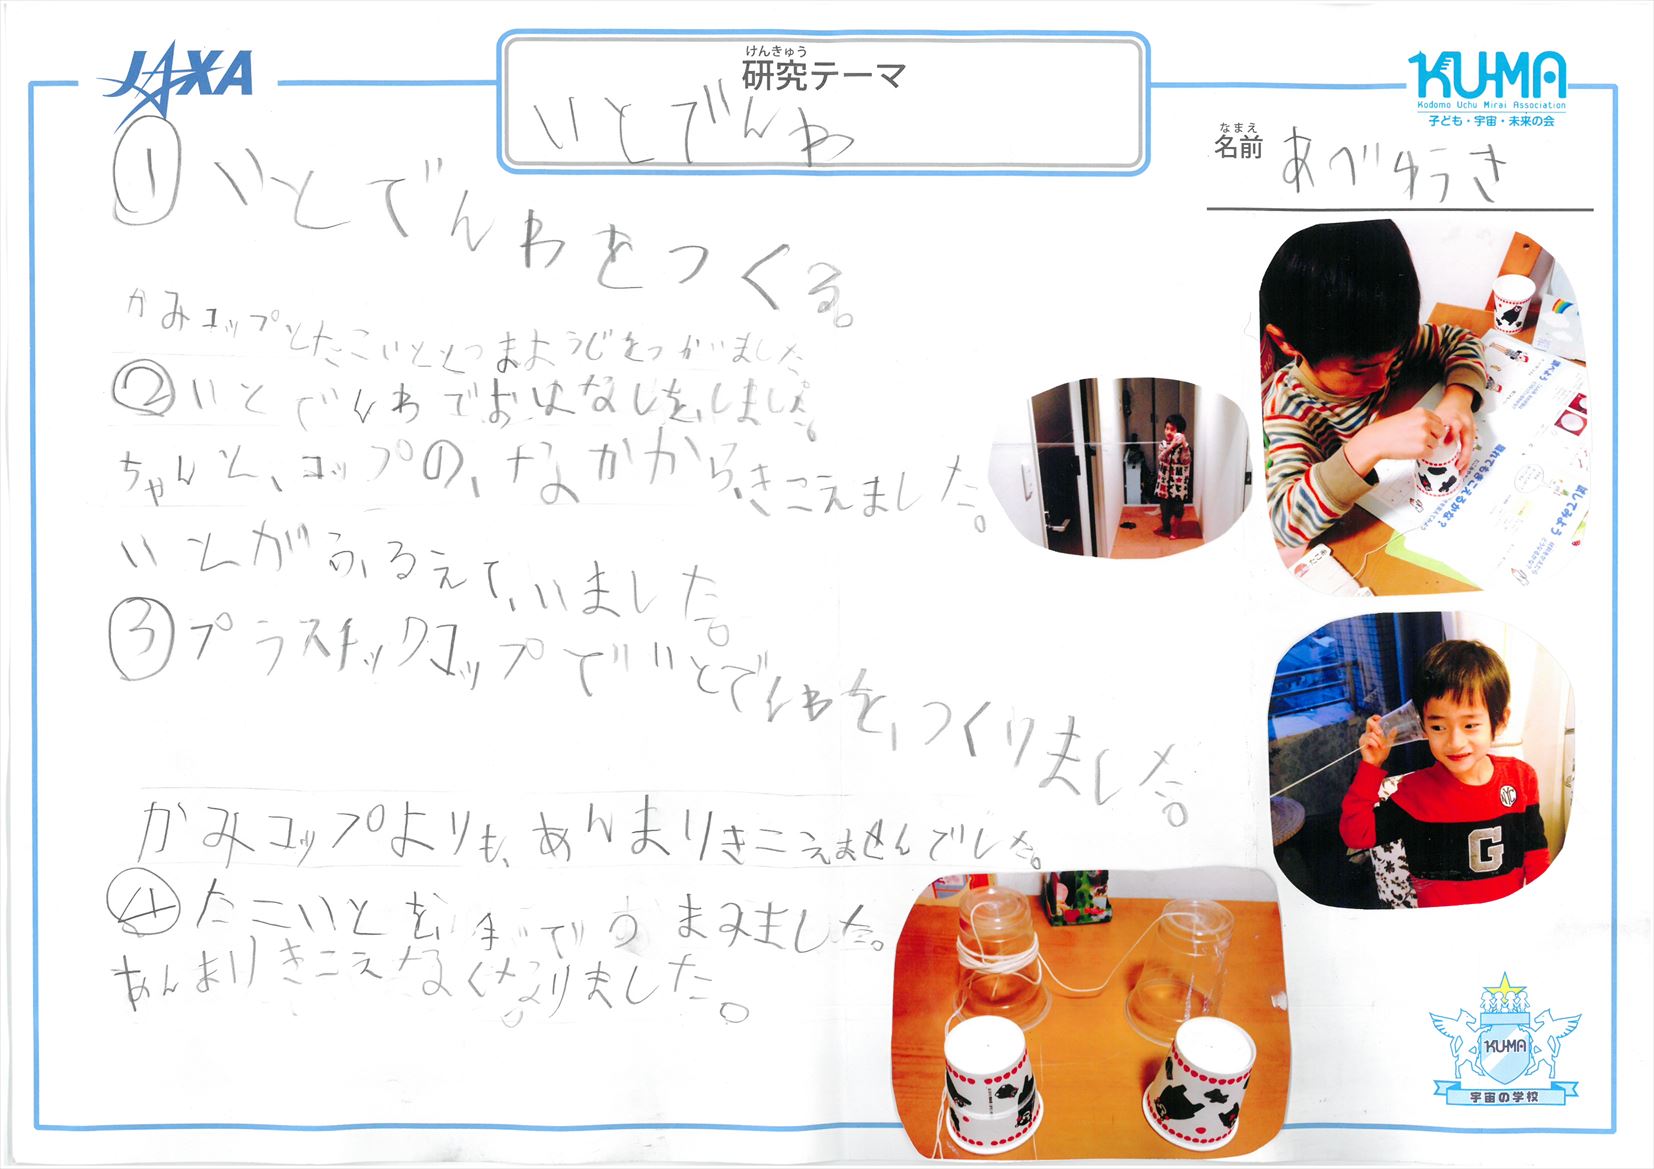 JAXA
けんきゅう
研究テーマ
いとでんわ
KU-MA
Kodomo Uchu Mirai Association
子ども・宇宙・未来の会
なまえ
名前 あべゆうき
① いとでんわをつくる。
かみコップとたこいととつまようじをつかいました
② いとでんわでおはなしを、しました。
ちゃんと、コップの、なかから、きこえました。
いとがふるえて、いました。
③ プラスチックコップでいとでんわを、つくりました。
かみコップよりも、あんまりきこえませんでした。
④ たこいとを、手でつまみました。
あんまりきこえなくなりました。
聞こえるかな?
試してみよう
NYC
G
KUMA
宇宙の学校